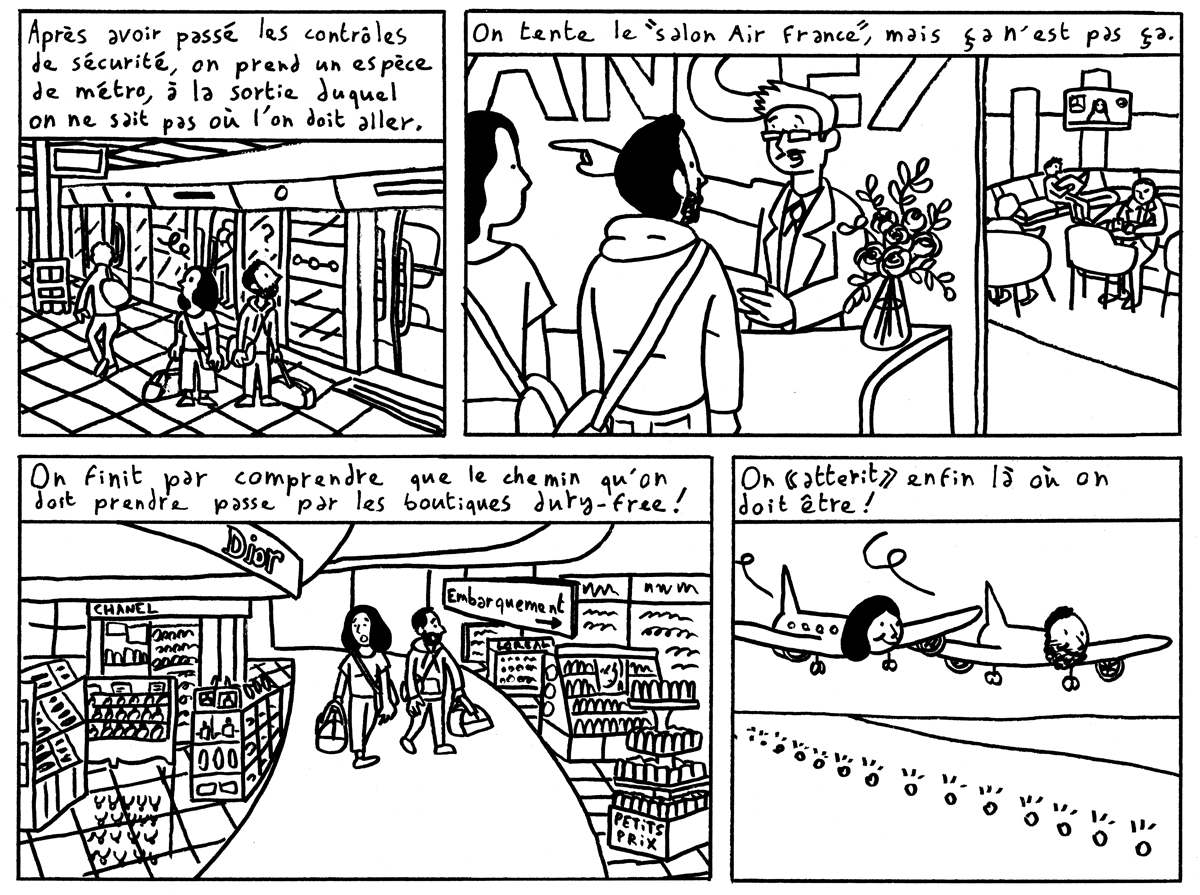 Après avoir passé les contrôles
de sécurité, on prend un espèce
de métro, à la sortie duquel
on ne sait pas où l'on doit aller.
?
On tente le "salon Air France", mais ça n'est pas ça.
ANCE /
On finit par comprendre que le chemin qu'on
doit prendre passe par les boutiques duty-free !
Dior
CHANEL
Embarquement
LOREAL
PETITS
PRIX
On «atterit» enfin là où on
doit être !